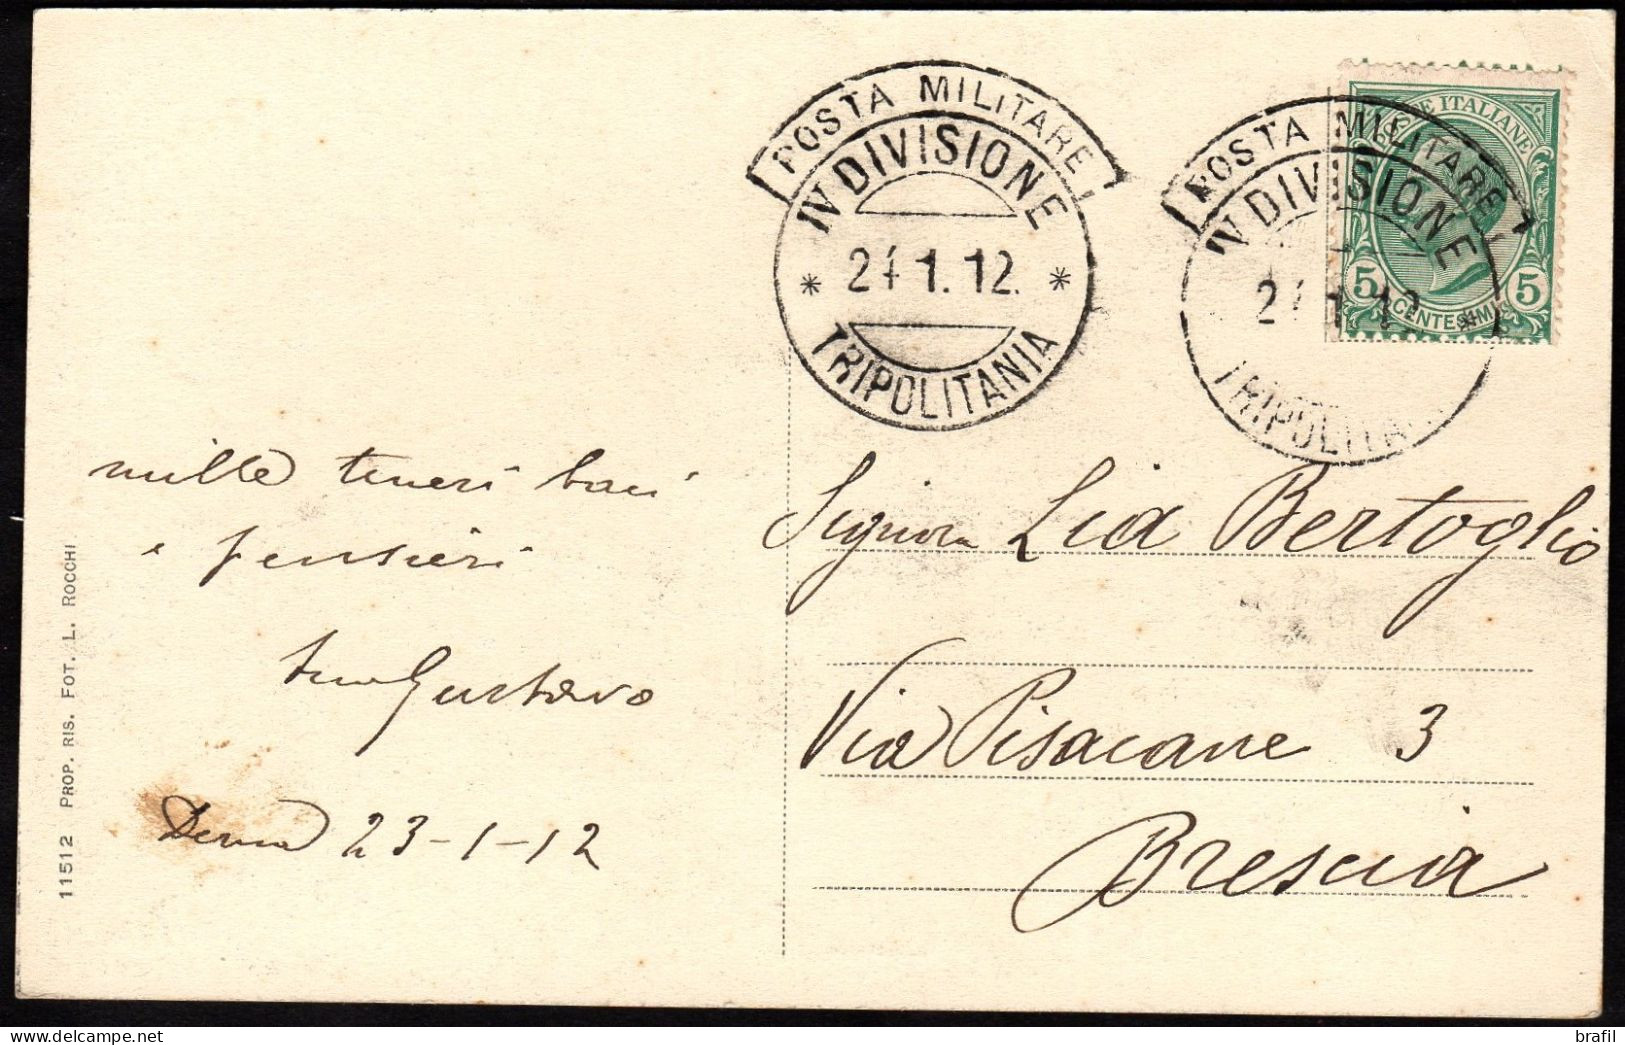 POSTA MILITARE
IV DIVISIONE
* 24.1.12. *
TRIPOLITANIA
POSTA MILITARE
IV DIVISIONE
TRIPOLITA
POSTE ITALIANE
5 5
CENTESIMI
mille teneri baci
e pensieri
tuo Gustavo
Derna 23-1-12
Signora Lia Bertoglio
Via Pisacane 3
Brescia
11512 PROP. RIS. FOT. L. ROCCHI
brafil